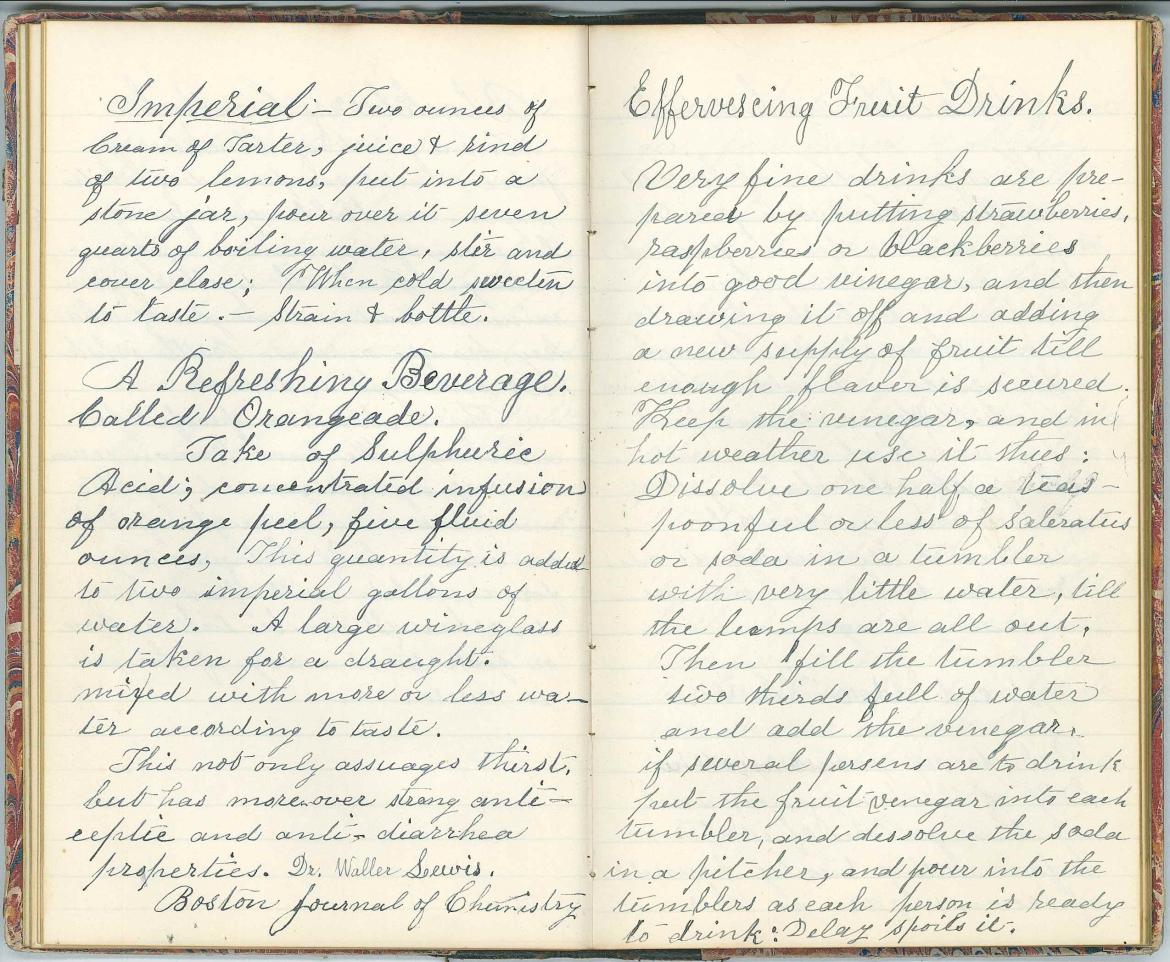 Imperial – Two ounces of
Cream of Tarter, juice & rind
of two lemons, put into a
stone jar, pour over it seven
quarts of boiling water, stir and
cover close; When cold sweeten
to taste. – Strain & bottle.
A Refreshing Beverage.
Called Orangeade.
Take of Sulphuric
Acid; concentrated infusion
of orange peel, five fluid
ounces, This quantity is added
to two imperial gallons of
water. A large wineglass
is taken for a draught.
mixed with more or less wa-
ter according to taste.
This not only assuages thirst,
but has moreover strong anti-
ceptic and anti-diarrhea
properties. Dr. Waller Lewis.
Boston Journal of Chemistry
Effervescing Fruit Drinks.
Very fine drinks are pre-
pared by putting strawberries,
raspberries or blackberries
into good vinegar, and then
drawing it off and adding
a new supply of fruit till
enough flavor is secured.
Keep the vinegar, and in
hot weather use it thus:
Dissolve one half a teas-
poonful or less of Saleratus
or soda in a tumbler
with very little water, till
the lumps are all out.
Then fill the tumbler
two thirds full of water
and add the vinegar.
if several persens are to drink
put the fruit vinegar into each
tumbler, and dissolve the soda
in a pitcher, and pour into the
tumblers as each person is ready
to drink: Delay spoils it.